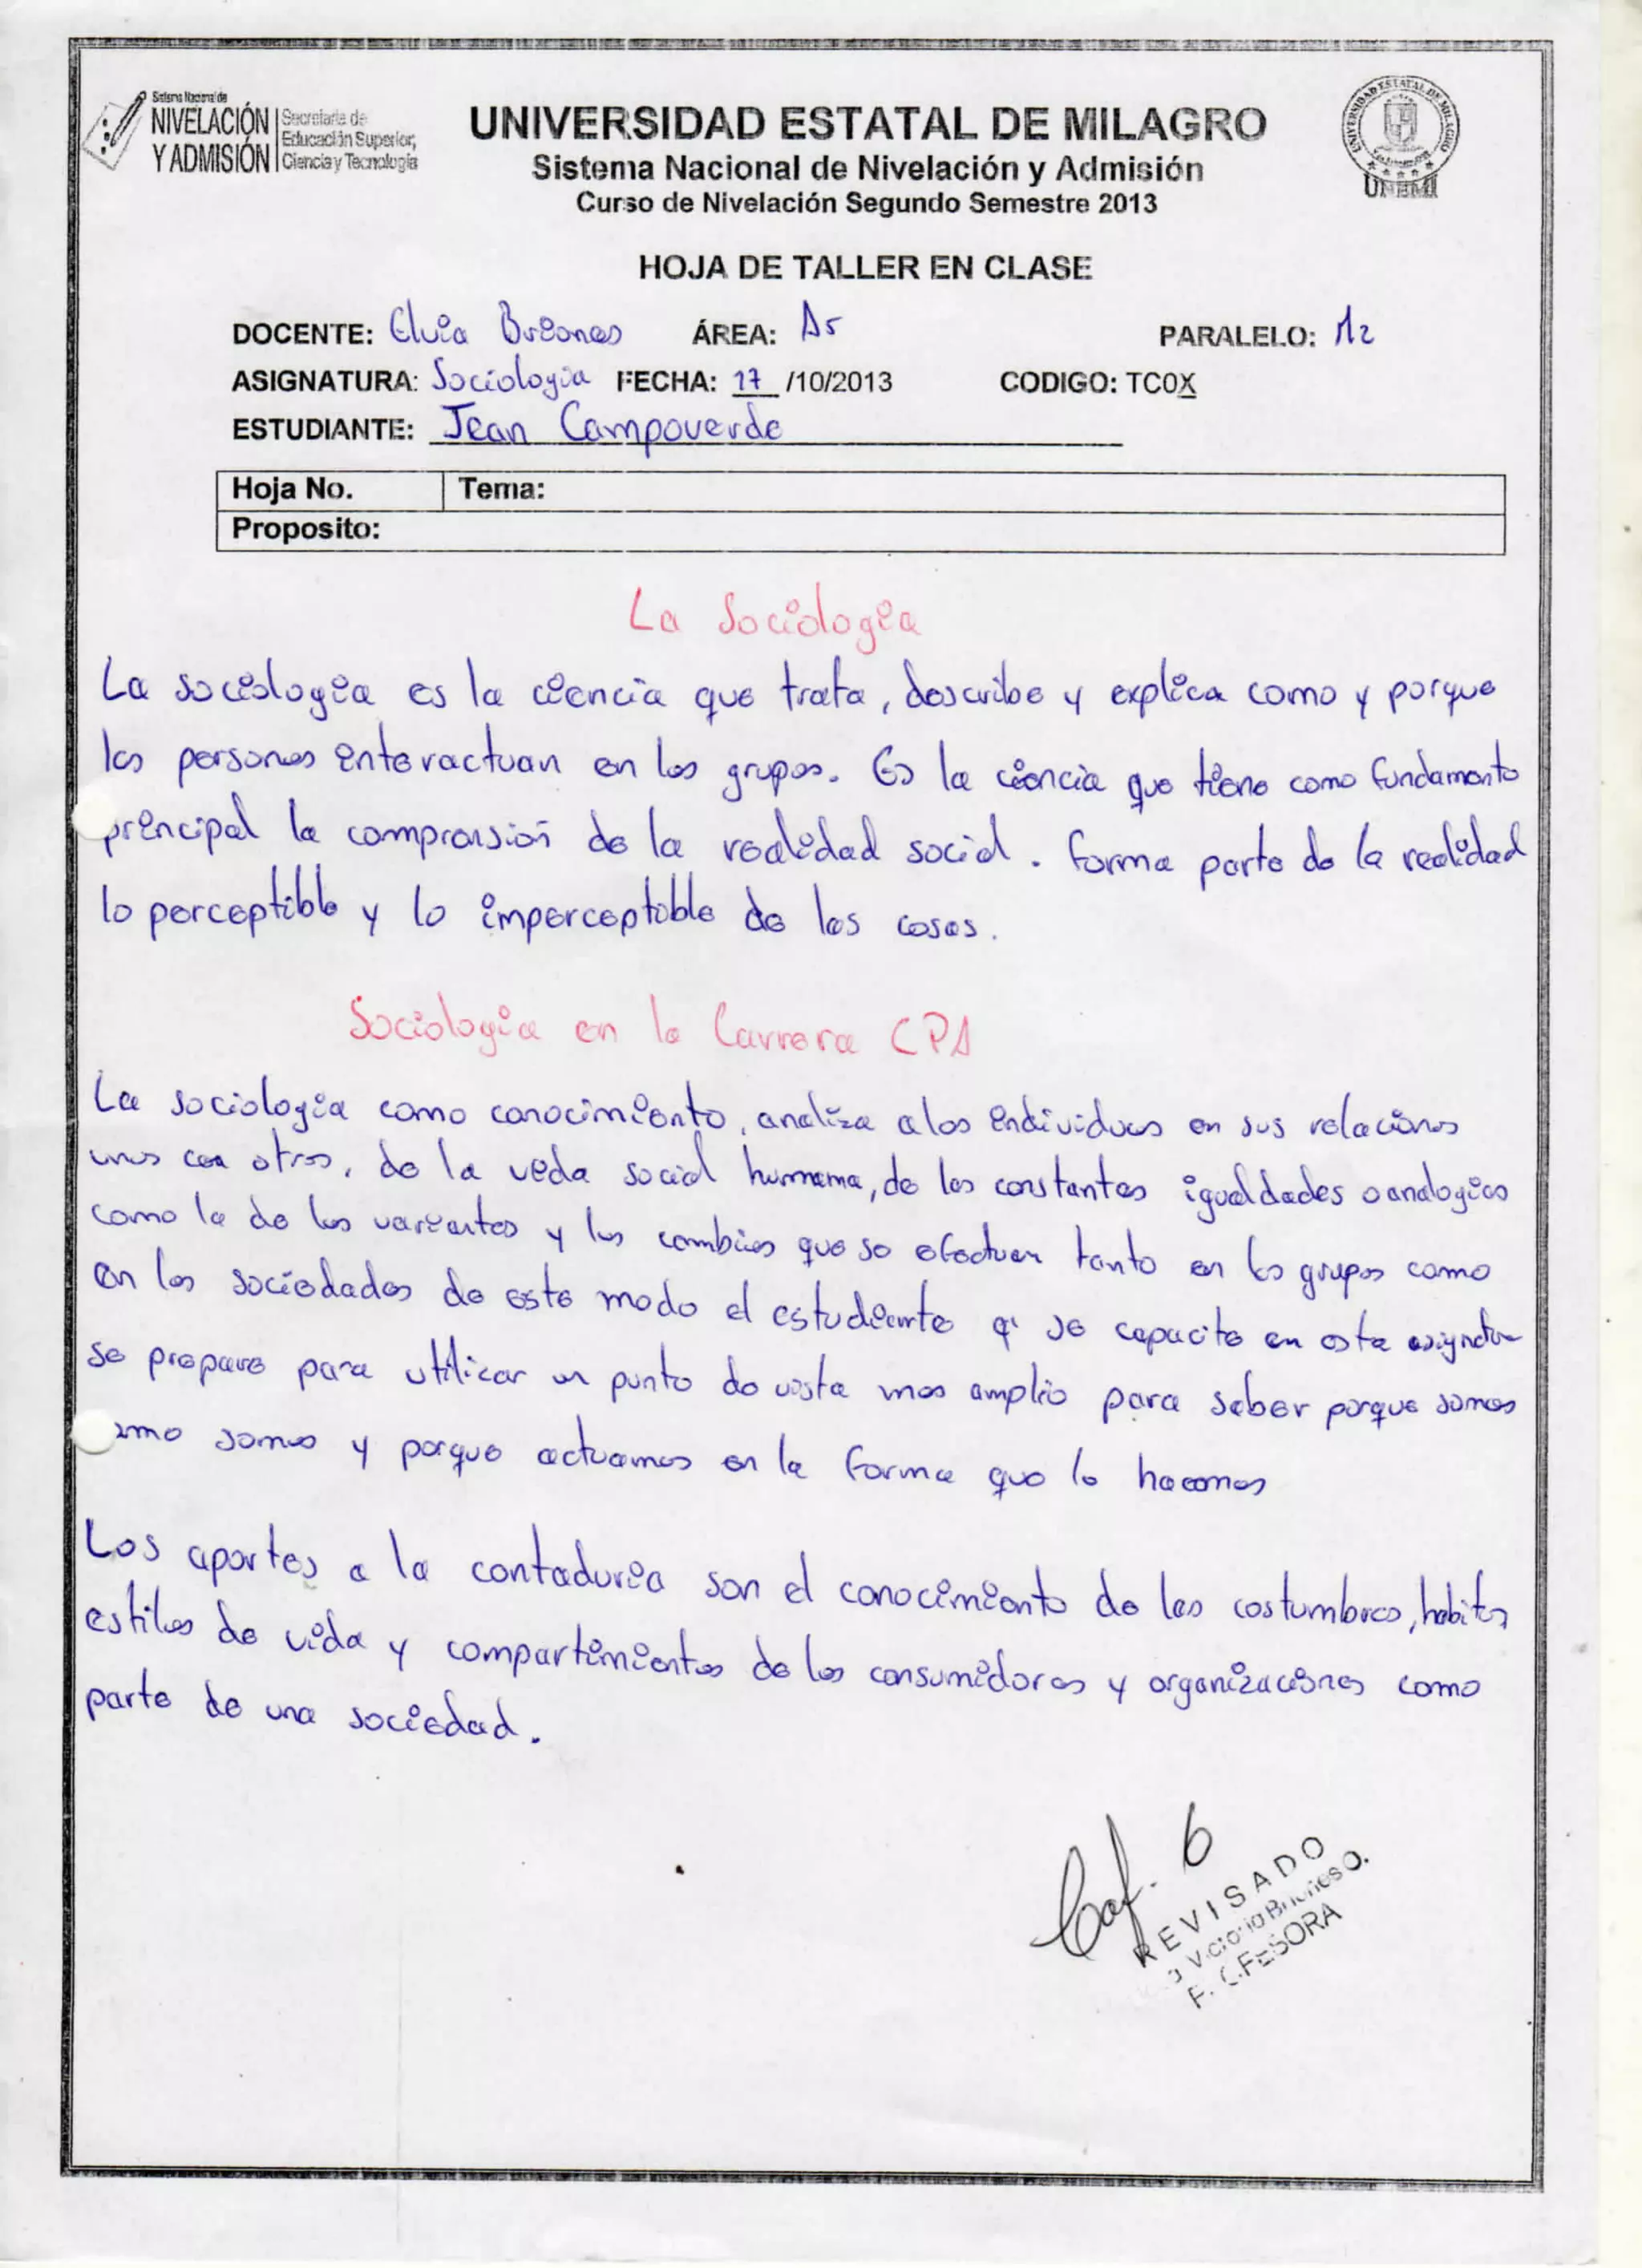 Sistema Nacional de
NIVELACIÓN
Y ADMISIÓN
Secretaría de
Educación Superior,
Ciencia y Tecnología
UNIVERSIDAD ESTATAL DE MILAGRO
Sistema Nacional de Nivelación y Admisión
Curso de Nivelación Segundo Semestre 2013
UNIVERSIDAD ESTATAL DE MILAGRO
UNEMI
HOJA DE TALLER EN CLASE
DOCENTE: Elvia Briones ÁREA: A5 PARALELO: M2
ASIGNATURA: Sociologia FECHA: 17 /10/2013 CODIGO: TC0X
ESTUDIANTE: Jean Campoverde
Hoja No. Tema:
Proposito:
La Sociologia
La sociologia es la ciencia que trata, describe y explica como y porque
las personas interactuan en los grupos. Es la ciencia que tiene como fundamento
principal la comprensión de la realidad social. forma parte de la realidad
lo perceptible y lo imperceptible de las cosas.
Sociologia en la Carrera CPA
La sociologia como conocimiento, analiza a los individuos en sus relaciones
unos con otros, de la vida social humana, de las constantes igualdades o analogias
como la de las variantes y los cambios que se efectuan tanto en los grupos como
en las sociedades de este modo el estudiante q' se capacite en esta asignatura
se prepare para utilizar un punto de vista mas amplio para saber porque somos
como somos y porque actuamos en la forma que lo hacemos
Los aportes a la contaduria son el conocimiento de las costumbres, habitos,
estilos de vida y compartimientos de los consumidores y organizaciones como
parte de una sociedad.
Caf. 6
REVISADO
Briones O.
PROFESORA